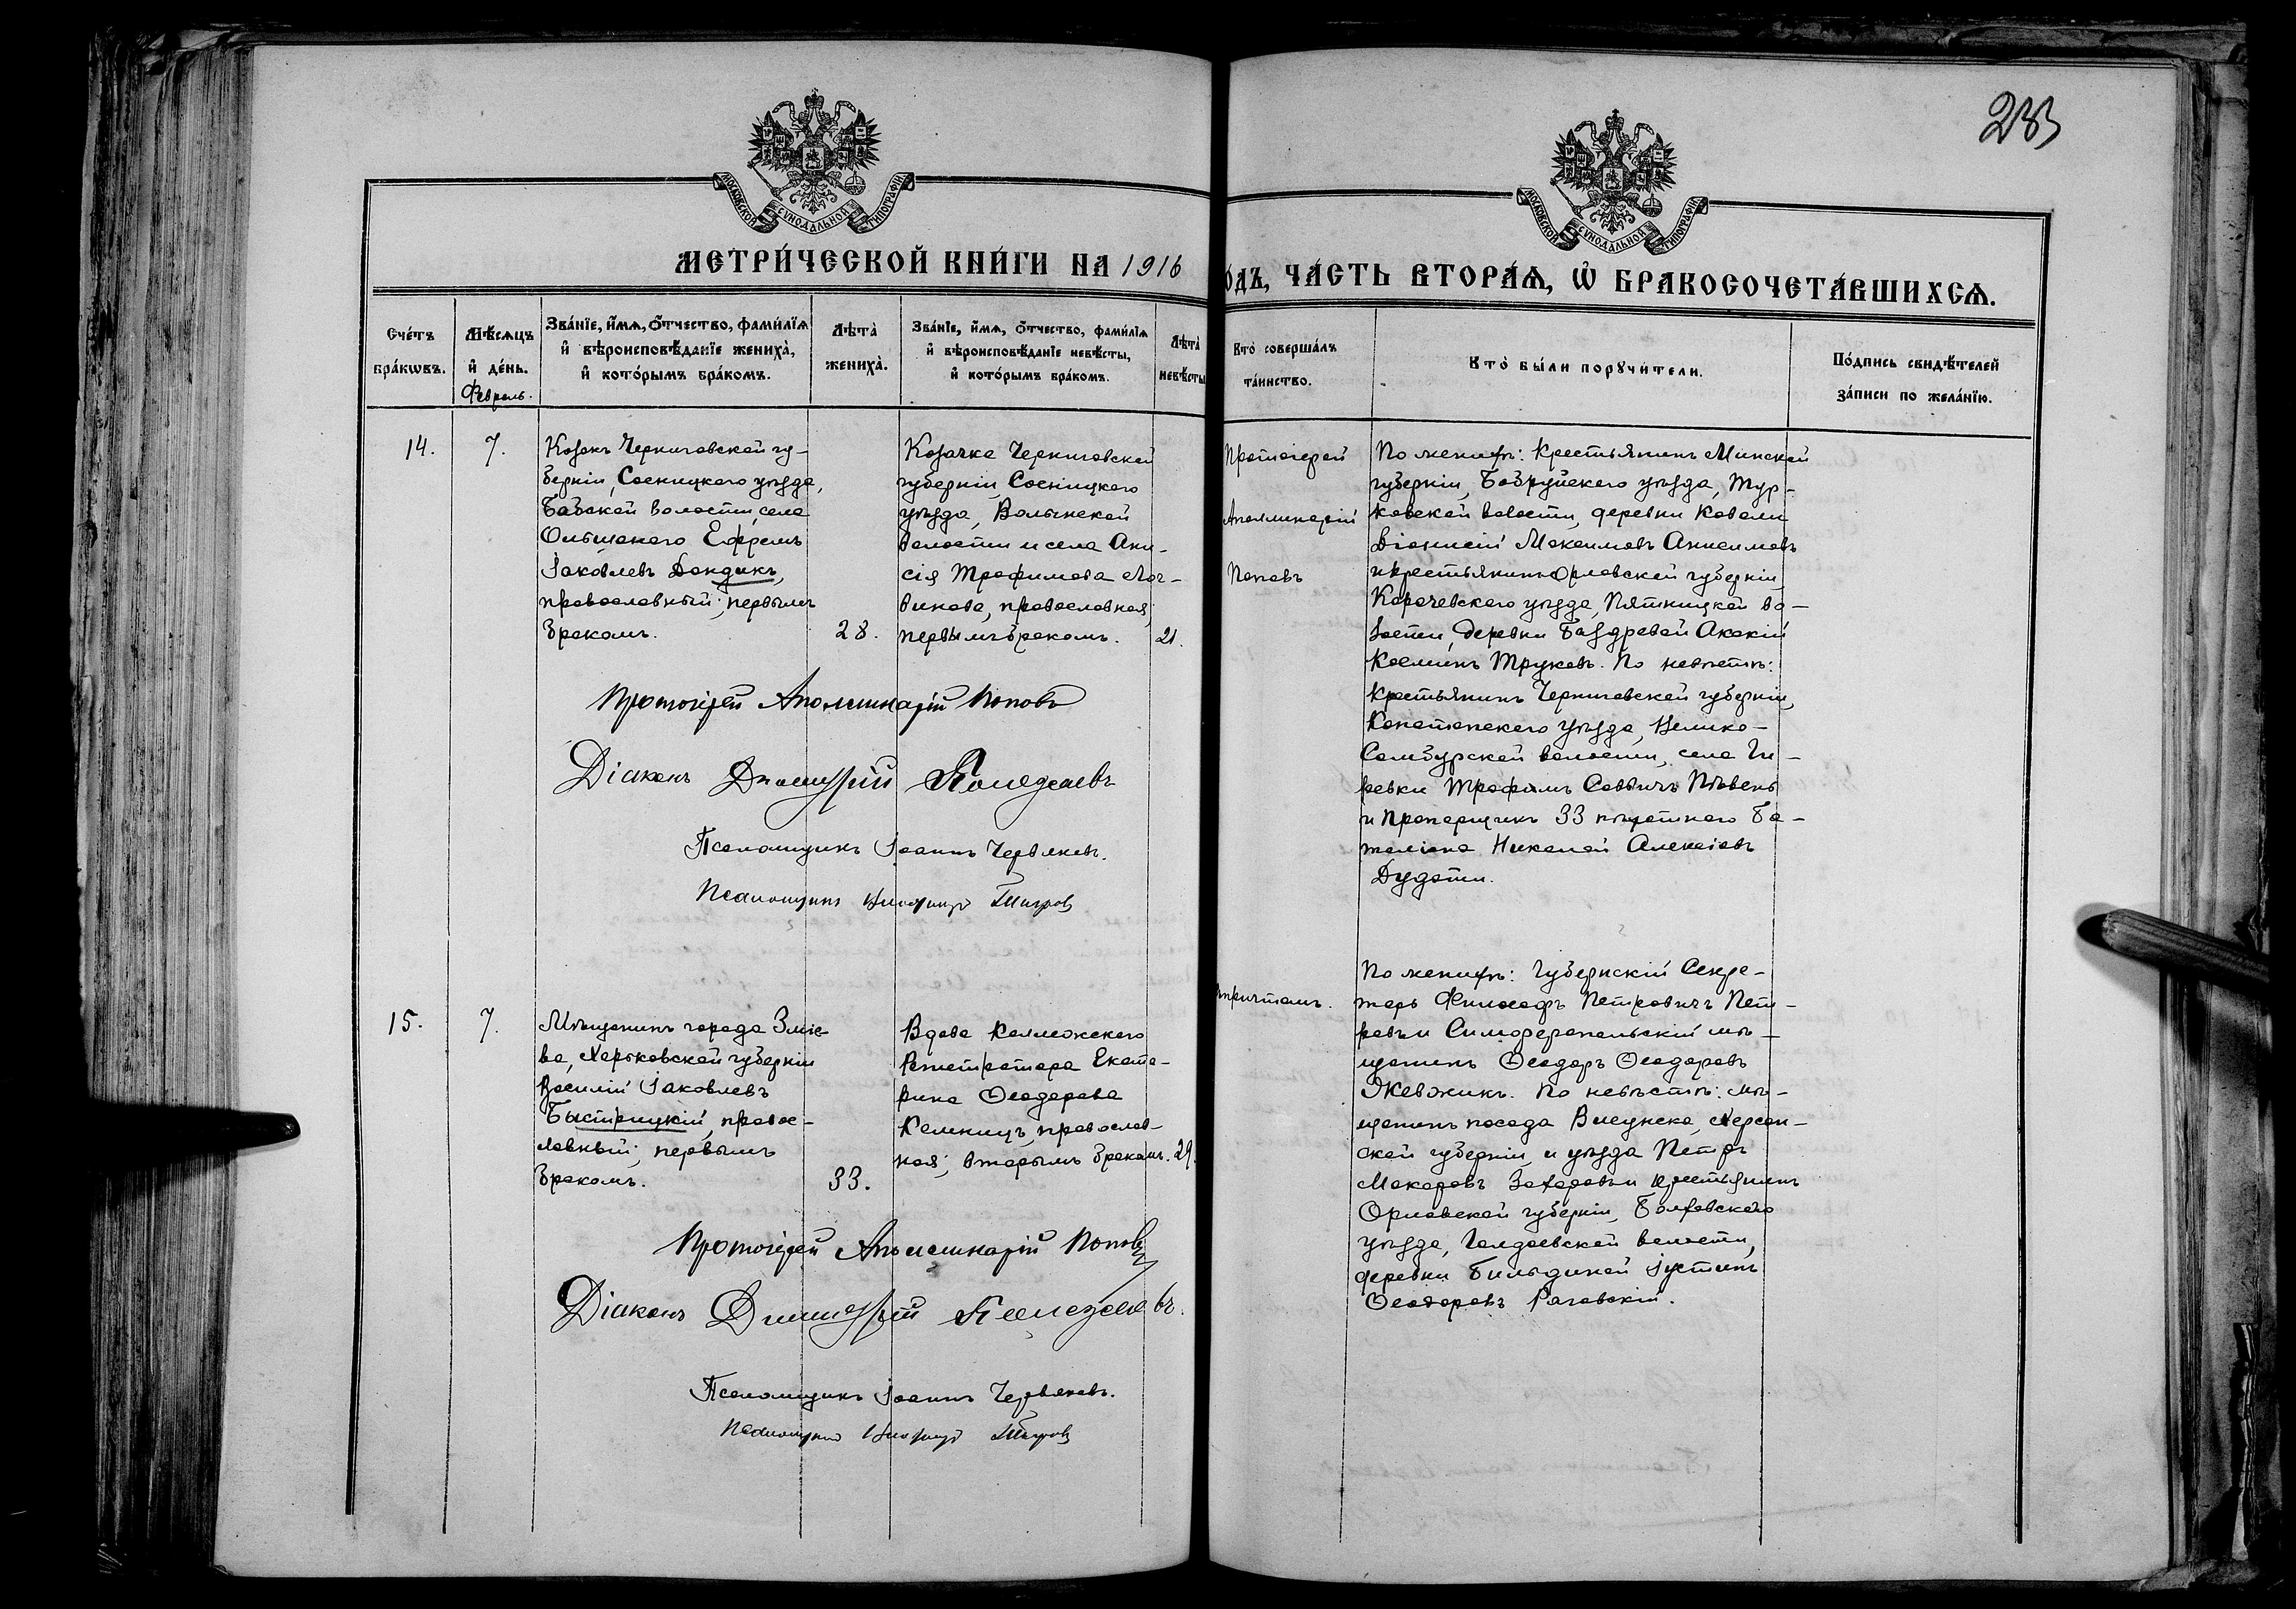 283
МОСКОВСКОЙ СѴНОДАЛЬНОЙ ТИПОГРАФІИ
МОСКОВСКОЙ СѴНОДАЛЬНОЙ ТИПОГРАФІИ
МЕТРИ́ЧЕСКОЙ КНИ́ГИ НА 1916
О́ДЪ, ЧА́СТЬ ВТОРА́Ѧ, Ѡ БРАКОСОЧЕТА́ВШИХСѦ.
Сче́тъ
бра́кѡвъ.
Мѣ́сѧцъ
и҆ де́нь.
Февраль.
Зва́нїе, и҆́мѧ, ѻ҆́тчество, фами́лїѧ
и҆ вѣроисповѣ́данїе жениха̀,
и҆ кото́рымъ бра́комъ.
Лѣ́та
жениха̀.
Зва́нїе, и҆́мѧ, ѻ҆́тчество, фами́лїѧ
и҆ вѣроисповѣ́данїе невѣ́сты,
и҆ кото́рымъ бра́комъ.
Лѣ́та
невѣ́сты
Кто̀ соверша́лъ
та́инство.
Кто̀ бы́ли порꙋчи́тели.
По́дпись свидѣ́телей
за́писи по жела́нїю.
14.
7.
Козакъ Черниговской гу-
берніи, Сосницкого уѣзда,
Бабской волости, села
Ольшаного Ефремъ
Іаковлевъ Дондикъ,
православный; первымъ
бракомъ.
28.
Козачка Черниговской
губерніи Сосницкого
уѣзда, Волынской
волости и села Ани-
сія Трофимова Лог-
винова, православная;
первымъ бракомъ.
21.
Протоіерей
Аполлинарій
Поповъ
По женихѣ: Крестьянинъ Минской
губерніи, Бобруйского уѣзда, Тур-
ковской волости, деревни Ковали
Діонисій Максимовъ Анисимовъ
и крестьянинъ Орловской губерніи,
Карачевского уѣзда, Пятницкой во-
лости, деревни Баздревой Акакій
Косминъ Труковъ. По невѣстѣ:
Крестьянинъ Черниговской губерніи,
Конотопского уѣзда, Велико-
Самбурской волости, села Ги-
ревки Трофимъ Саввичъ Пѣвень
и Прапорщикъ 33 пѣхотного Ба-
таліона Николай Алексіевъ
Дудати.
Протоіерей Аполлинарій Поповъ
Діаконъ Димитрій Полежаевъ
Псаломщикъ Іоаннъ Червяковъ.
Псаломщикъ
15.
7.
Мѣщанинъ города Зміе-
ва, Харьковской губерніи
Василій Іаковлевъ
Быстрицкій, правос-
лавный; первымъ
бракомъ.
33.
Вдова Коллежского
Регистратора Екате-
рина Ѳеодорова
Келиницъ, православ-
ная; вторымъ бракомъ.
29.
причтомъ.
По женихѣ: Губернскій Секре-
тарь Философъ Петровичъ Пет-
ровъ и Симферопольскій мѣ-
щанинъ Ѳеодоръ Ѳеодоровъ
Жевжикъ. По невѣстѣ: мѣ-
щанинъ посада Висунска, Херсон-
ской губерніи и уѣзда Петръ
Макаровъ Захаровъ и крестьянинъ
Орловской губерніи, Болховского
уѣзда, Голдаевской волости,
деревни Бильдиной Іустинъ
Ѳеодоровъ Раговскій.
Протоіерей Аполлинарій Поповъ
Діаконъ Димитрій Полежаевъ.
Псаломщикъ Іоаннъ Червяковъ.
Псаломщикъ